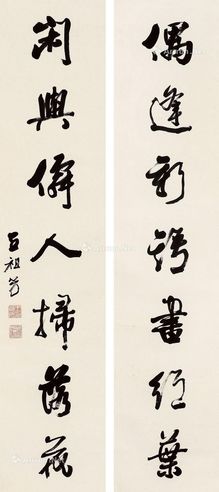 偶逢新語書紅葉
閑與僊人掃落花